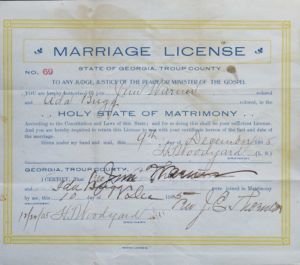 MARRIAGE LICENSE
STATE OF GEORGIA, TROUP COUNTY
NO. 69
TO ANY JUDGE, JUSTICE OF THE PEACE, OR MINISTER OF THE GOSPEL
You are hereby Authorized to join Jim Warner
and Ada Bugg colored, in the
HOLY STATE OF MATRIMONY
According to the Constitution and Laws of this State; and for so doing this shall be your sufficient License.
And you are hereby required to return this License to me with your certificate hereon of the fact and date of
the marriage.
Given under my hand and seal, this 9th December
H Woodyard
GEORGIA, TROUP COUNTY.
I CERTIFY, That Jim Warner
and Ada Bugg were joined in Matrimony
by me, this 10 Dec Rev J. E. Thornton
H Woodyard
MARRIAGE LICENSE